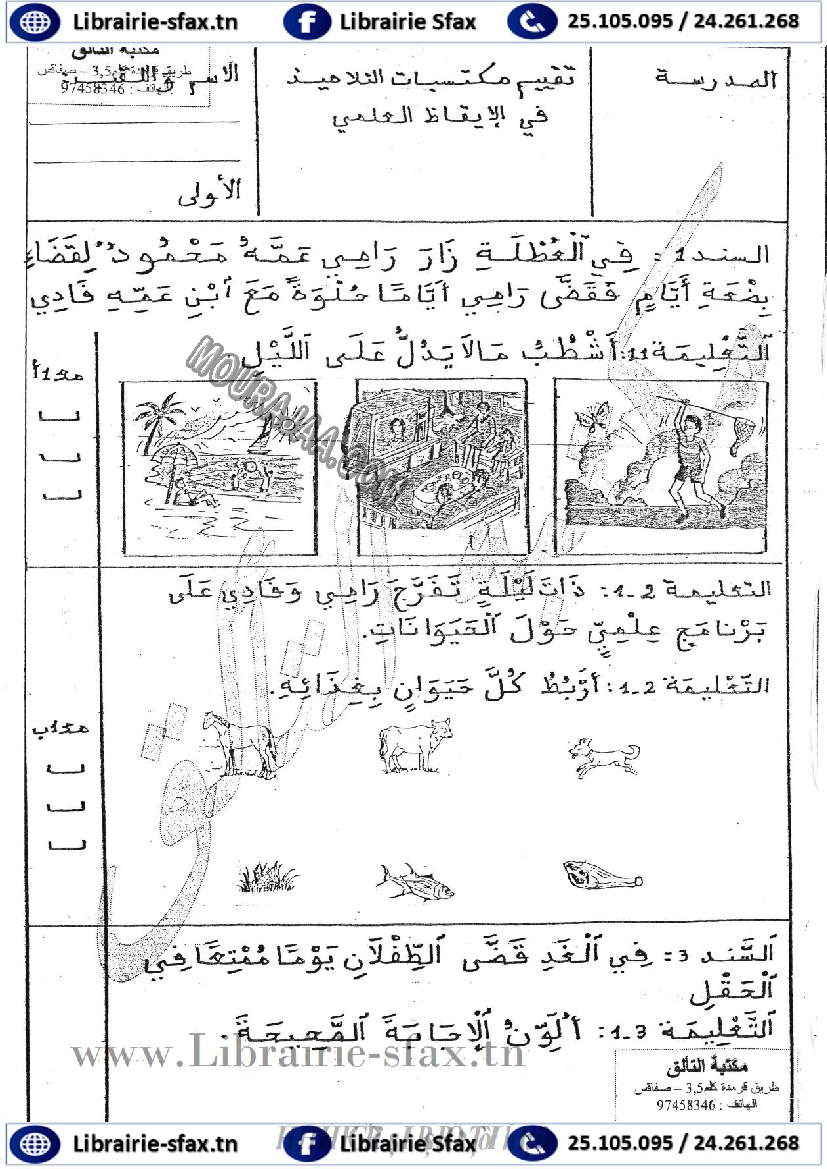 Librairie-sfax.tn Librairie Sfax 25.105.095 / 24.261.268
مكتبة التألق
طريق قرمدة كلم3,5 – صفاقص
الهاتف : 97458346
المدرسة
تقييم مكتسبات التلاميذ
في الإيقاظ العلمي
الاسم و اللقب
الأولى
السند 1: فِي الْعُطْلَةِ زَارَ رَامِي عَمَّهُ مَحْمُود لِقَضَاءِ
بِضْعَةِ أَيَّامٍ فَقَضَّى رَامِي أَيَّامًا حُلْوَةً مَعَ اَبْنِ عَمِّهِ فَادِي
اَلتَّعْلِيمَة 1.1: أَشْطُبُ مَا لَا يَدُلُّ عَلَى اَللَّيْلِ.
مع1أ
MOURAJAA.COM
التعليمة 2-1: ذَاتَ لَيْلَةٍ تَفَرَّجَ رَامِي وَفَادِي عَلَى
بَرْنَامَجٍ عِلْمِيٍّ حَوْلَ اَلْحَيَوَانَاتِ.
التَّعْلِيمَة 2-1: أَرْبُطُ كُلَّ حَيَوَانٍ بِغِذَائِهِ.
مع1ب
اَلسَّند 3: فِي اَلْغَدِ قَضَّى اَلطِّفْلَانِ يَوْمًا مُمْتِعًا فِي
اَلْحَقْلِ
اَلتَّعْلِيمَة 3-1: أُلَوِّنُ اَلْإِجَابَةَ اَلصَّحِيحَةَ.
www.Librairie-sfax.tn
مكتبة التألق
طريق قرمدة كلم3,5 – صفاقص
الهاتف : 97458346
Librairie-sfax.tn Librairie Sfax 25.105.095 / 24.261.268